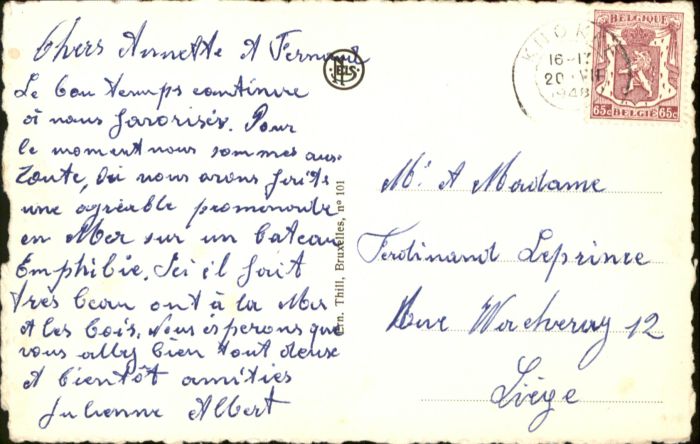 Chers Annette & Fernand
Le bon temps continue
à nous favorisés. Pour
le moment nous sommes aux
Zoute, Ou nous avons faite
une agréable promenade
en Mer sur un bateau
Emphibie. Ici il fait
très beau ont à la Mer
et les bois. Nous esperons que
vous allez bien tout deuse
A bientôt amities
Julienne Albert
ELS
Ern. Thill, Bruxelles, n° 101
KNOK
16-17
20 VII
1948
BELGIQUE
65c 65c
BELGIË
Mr & Madame
Ferdinand Leprince
Rue 12
Liège